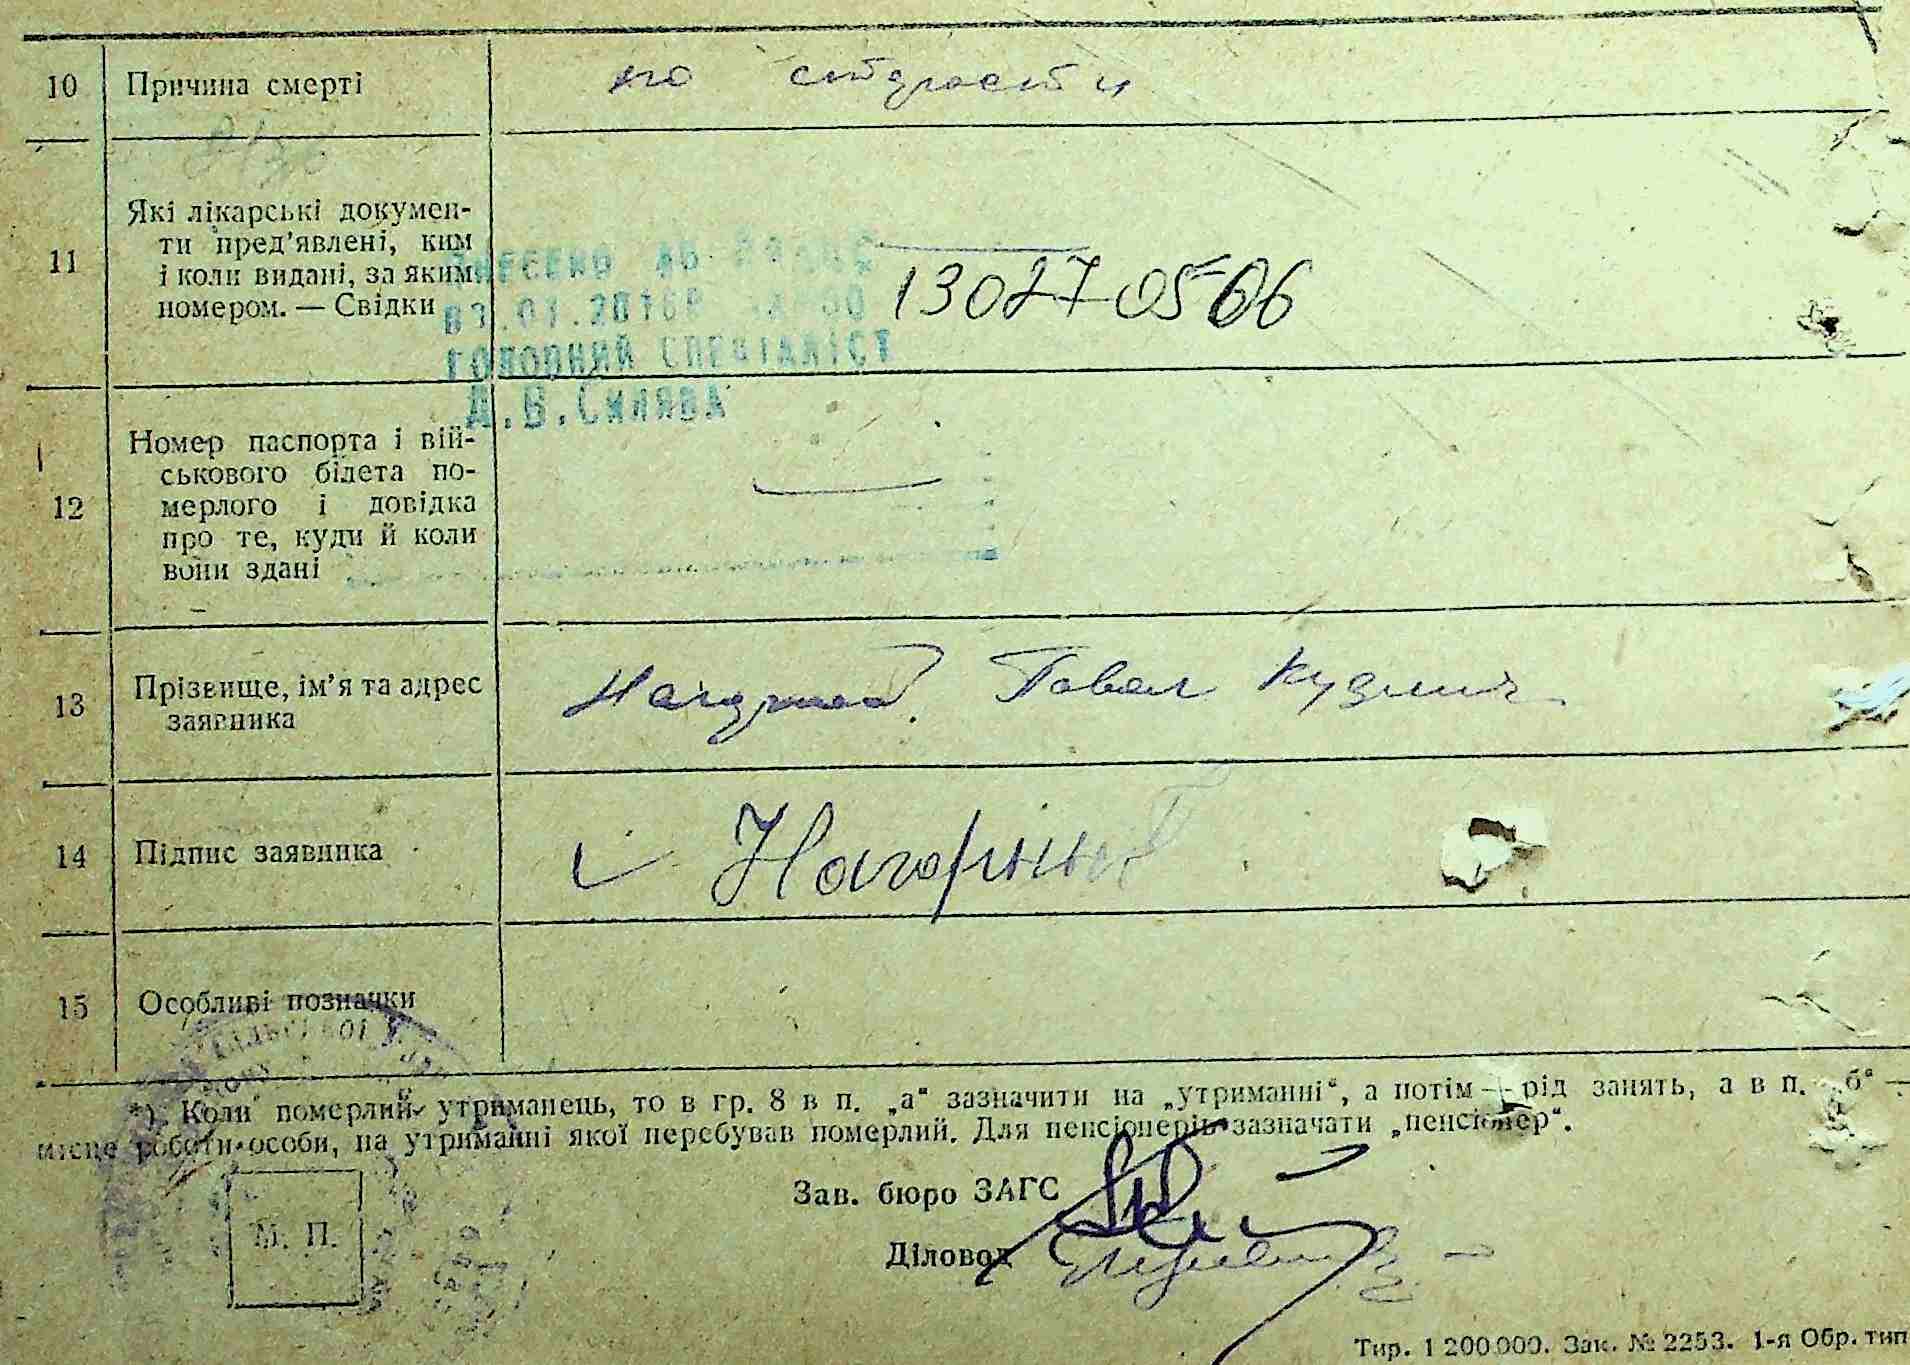 10 Причина смерти по старости
11 Які лікарські докумен-
ти пред'явлені, ким
і коли видані, за яким
номером. — Свідки
13027 0566
ВНЕСЕНО ДО
.01.2016
ГОЛОВНИЙ СПЕЦІАЛІСТ
12 Номер паспорта і вій-
ськового білета по-
мерлого і довідка
про те, куди й коли
вони здані
13 Прізвище, ім'я та адрес
заявника
Нагорный Павел Кузмич
14 Підпис заявника Нагорный
15 Особливі позначки
*) Коли померлий утриманець, то в гр. 8 в п. „а“ зазначити на „утриманні“, а потім — рід занять, а в п. „б“ —
місце роботи особи, на утриманні якої перебував померлий. Для пенсіонерів зазначати „пенсіонер“.
Зав. бюро ЗАГС
М. П.
Діловод
Тир. 1 200 000. Зак. № 2253. 1-я Обр. тип